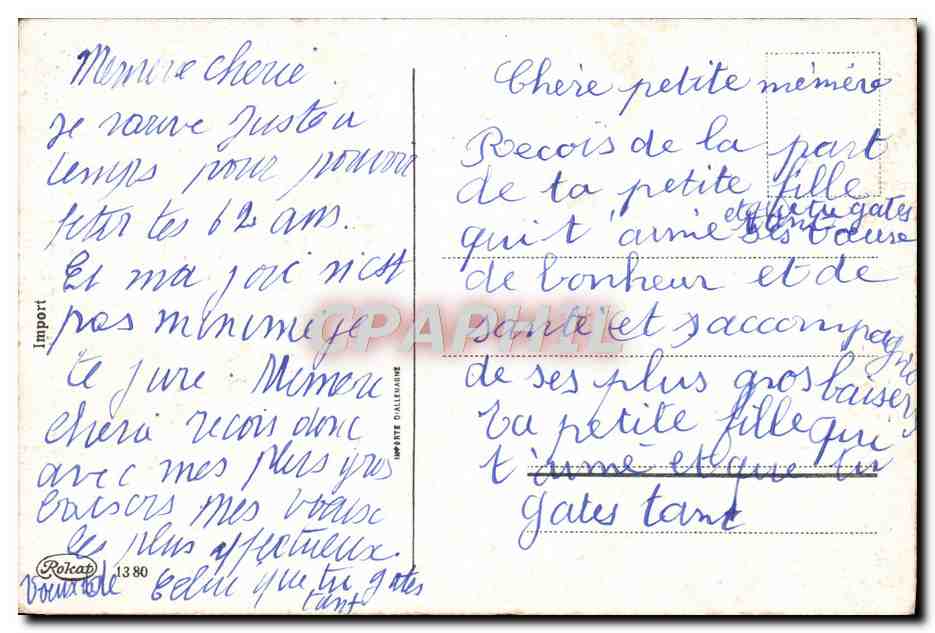 Mémère cherie
Je sauve juste a
temps pour pouvoir
feter tes 62 ans.
Et ma joie n'est
pas minime je
te jure. Mémère
cherie recois donc
avec mes plus gros
baisers mes voeux
les plus affectueux.
Celui que tu gates
tant
Import
IMPORTE D'ALLEMAGNE
Rokat
1380
CPAPHIL
Chère petite mémère
Recois de la part
de ta petite fille
et que tu gates
tant
qui t'aime ses voeux
de bonheur et de
santé et s'accompagne
de ses plus gros baisers
Ta petite fille qui
t'aime et que tu
gates tant